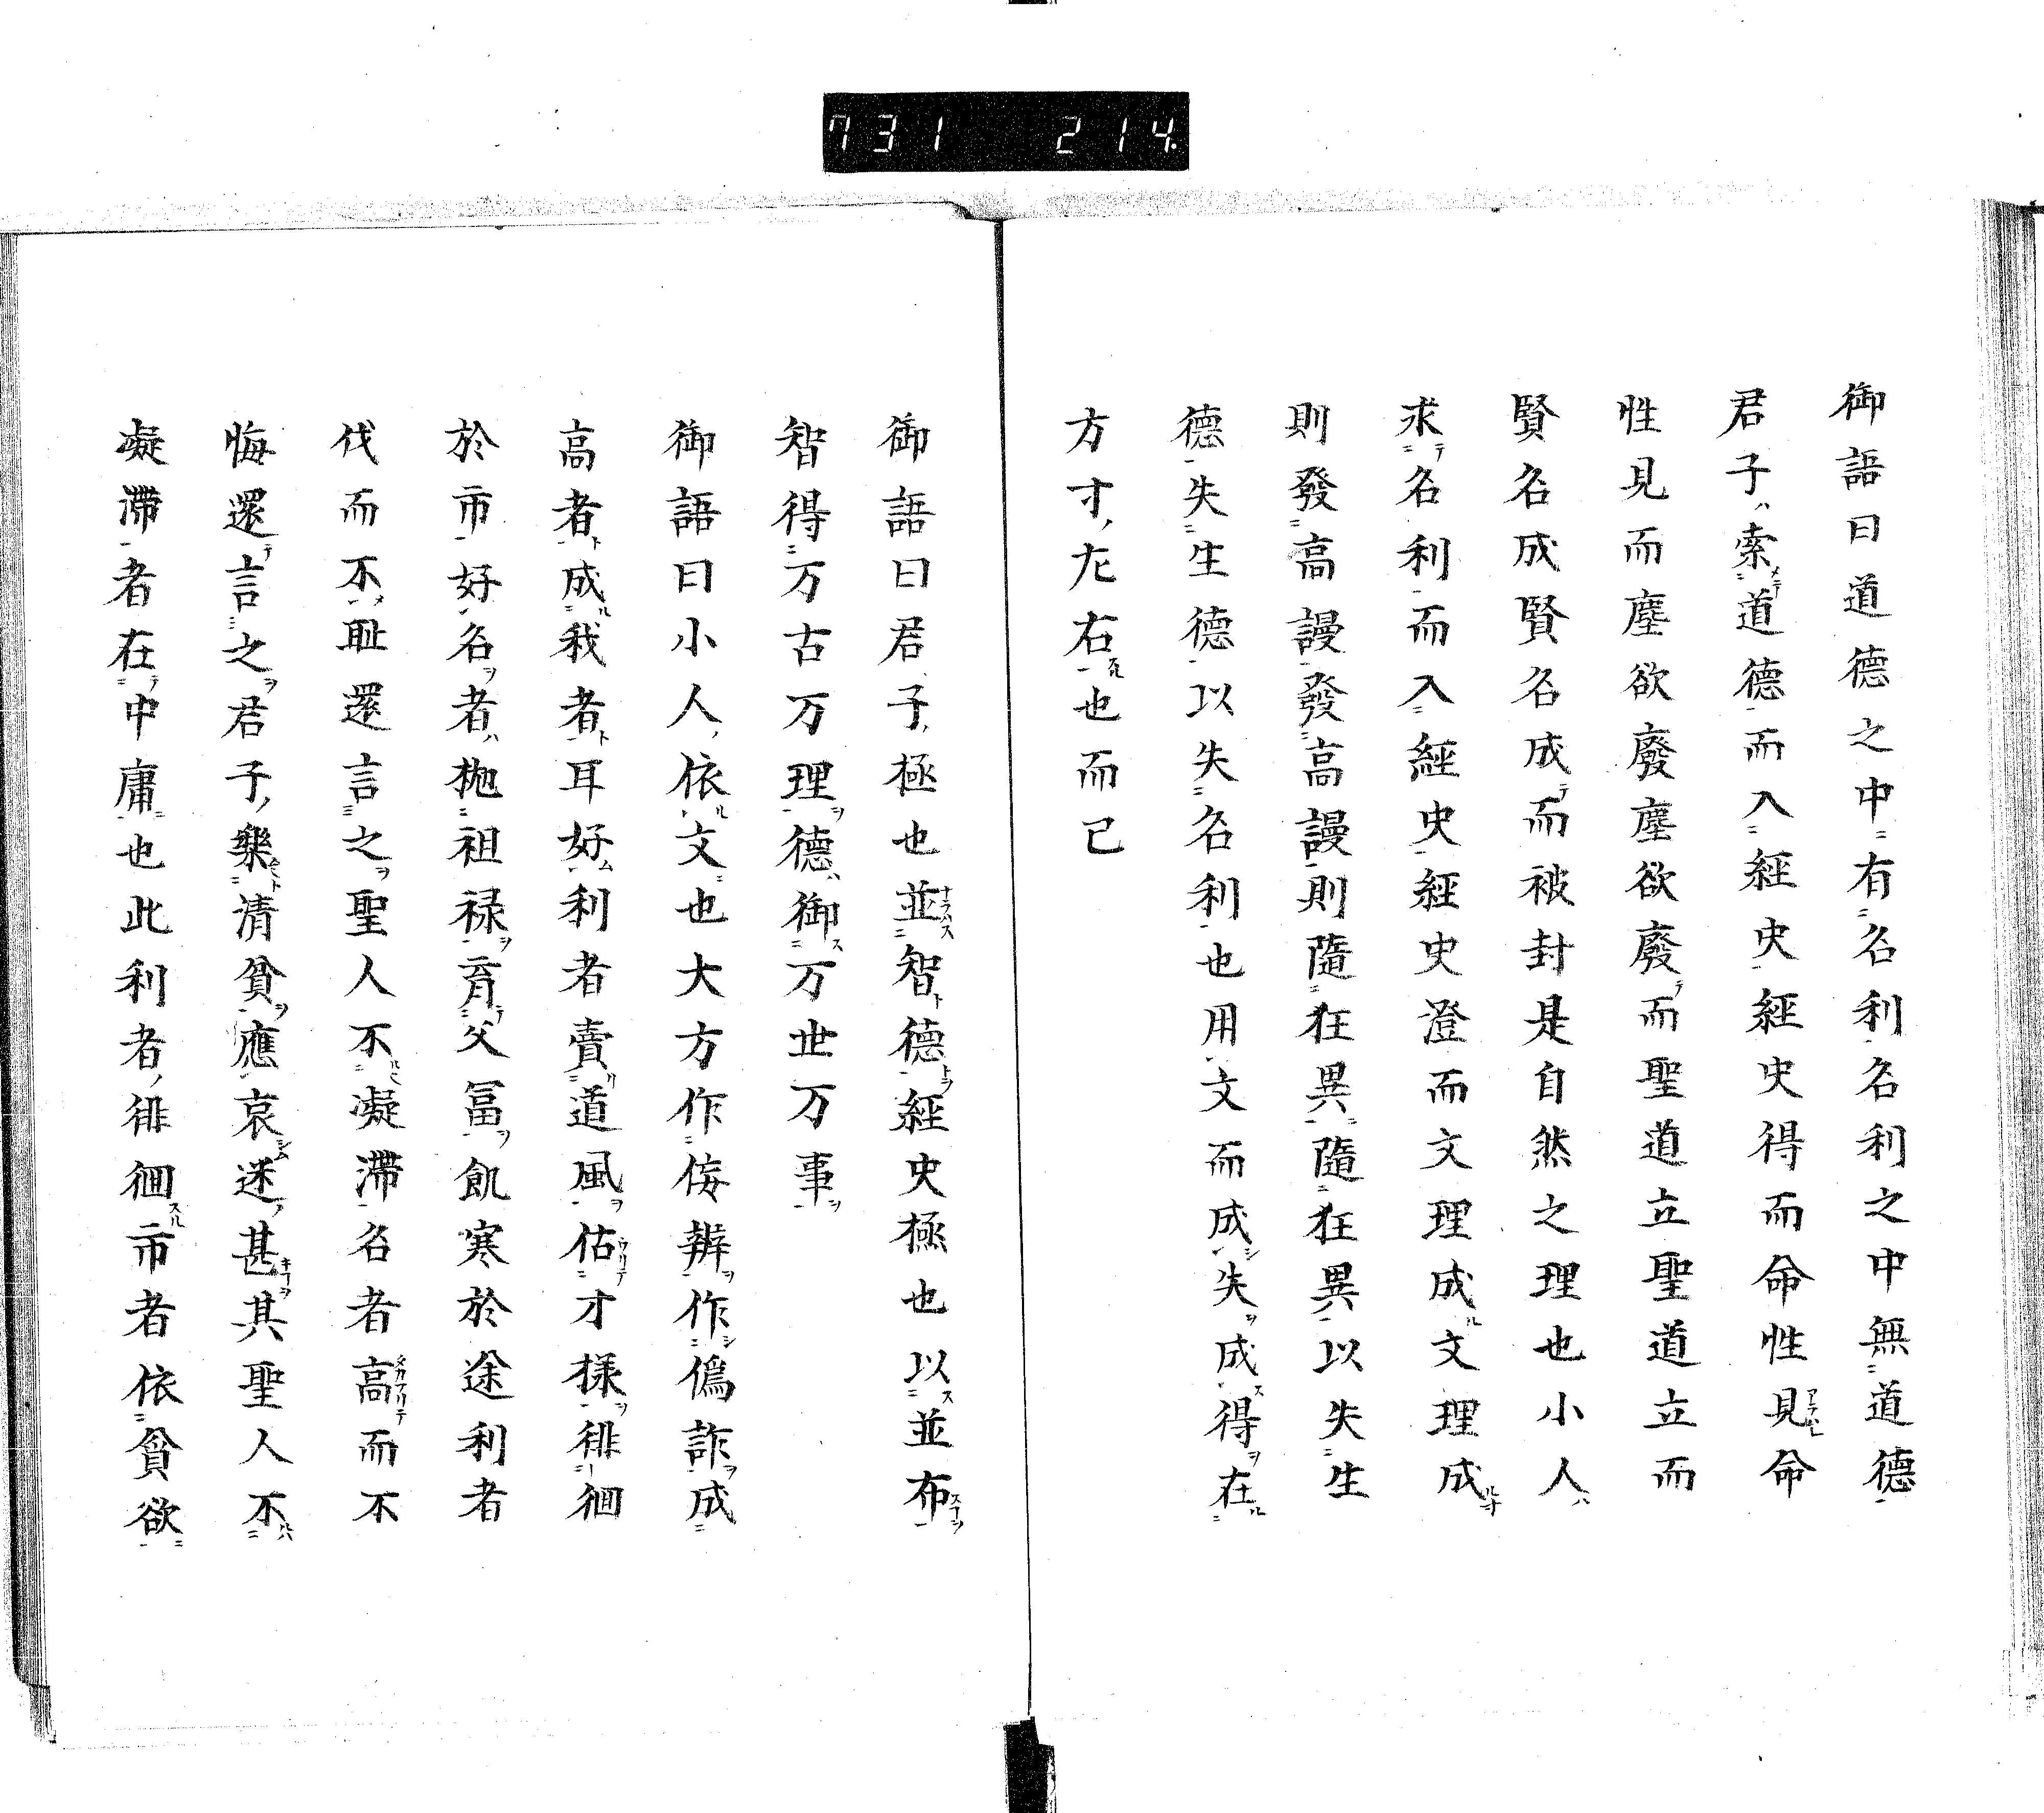 731 214
御語曰道德之中有名利名利之中無道德
君子索道德而入經史經史得而命性見命
性見而塵欲廢塵欲廢而聖道立聖道立而
賢名成賢名成而被封是自然之理也小人
求名利而入經史經史澄而文理成文理成
則發高謾發高謾則隨狂異隨狂異以失生
德失生德以失名利也用文而成失成得在
方寸左右也而已
御語曰君子極也並智德經史極也以並布
智得万古万理德御万世万事
御語曰小人依文也大方作侮辨作偽詐成
高者成我者耳好利者賣道風估才樣徘徊
於市好名者抛祖禄育父冨飢寒於途利者
伐而不耻還言之聖人不凝滯名者高而不
悔還言之君子樂清貧應哀迷甚其聖人不
凝滯者在中庸也此利者徘徊市者依貧欲